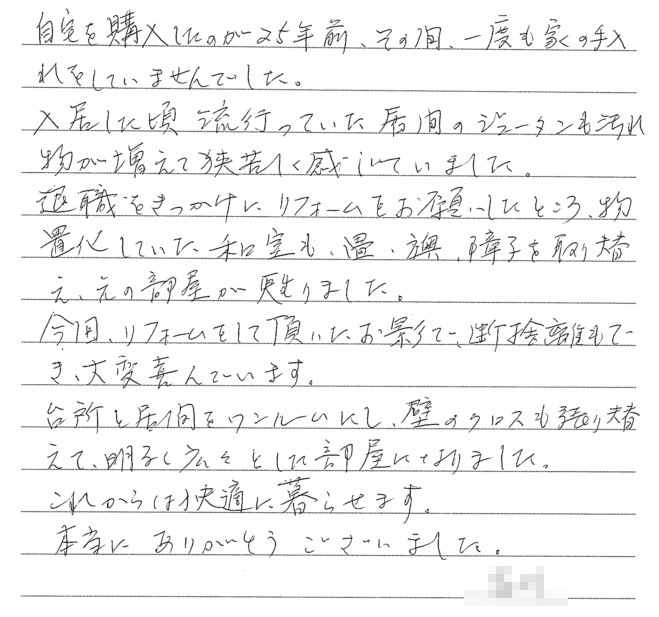 自宅を購入したのが25年前、その間、一度も家の手入
れをしていませんでした。
入居した頃流行っていた居間のジュータンも汚れ
物が増えて狭苦しく感じていました。
退職をきっかけに、リフォームをお願いしたところ、物
置化していた和室も、畳、襖、障子を取り替
え、元の部屋が甦りました。
今回、リフォームをして頂いたお影で、断捨離もで
き、大変喜んでいます。
台所と居間をワンルームにし、壁のクロスも張り替
えて、明るく広々とした部屋になりました。
これからは快適に暮らせます。
本当にありがとうございました。